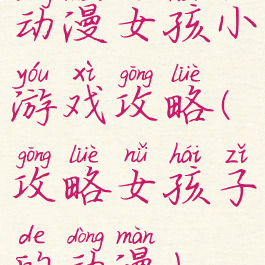 动漫女孩小
yóu xì gōng lüè
游戏攻略(
gōng lüè nǚ hái zǐ
攻略女孩子
de dòng màn
的动漫)